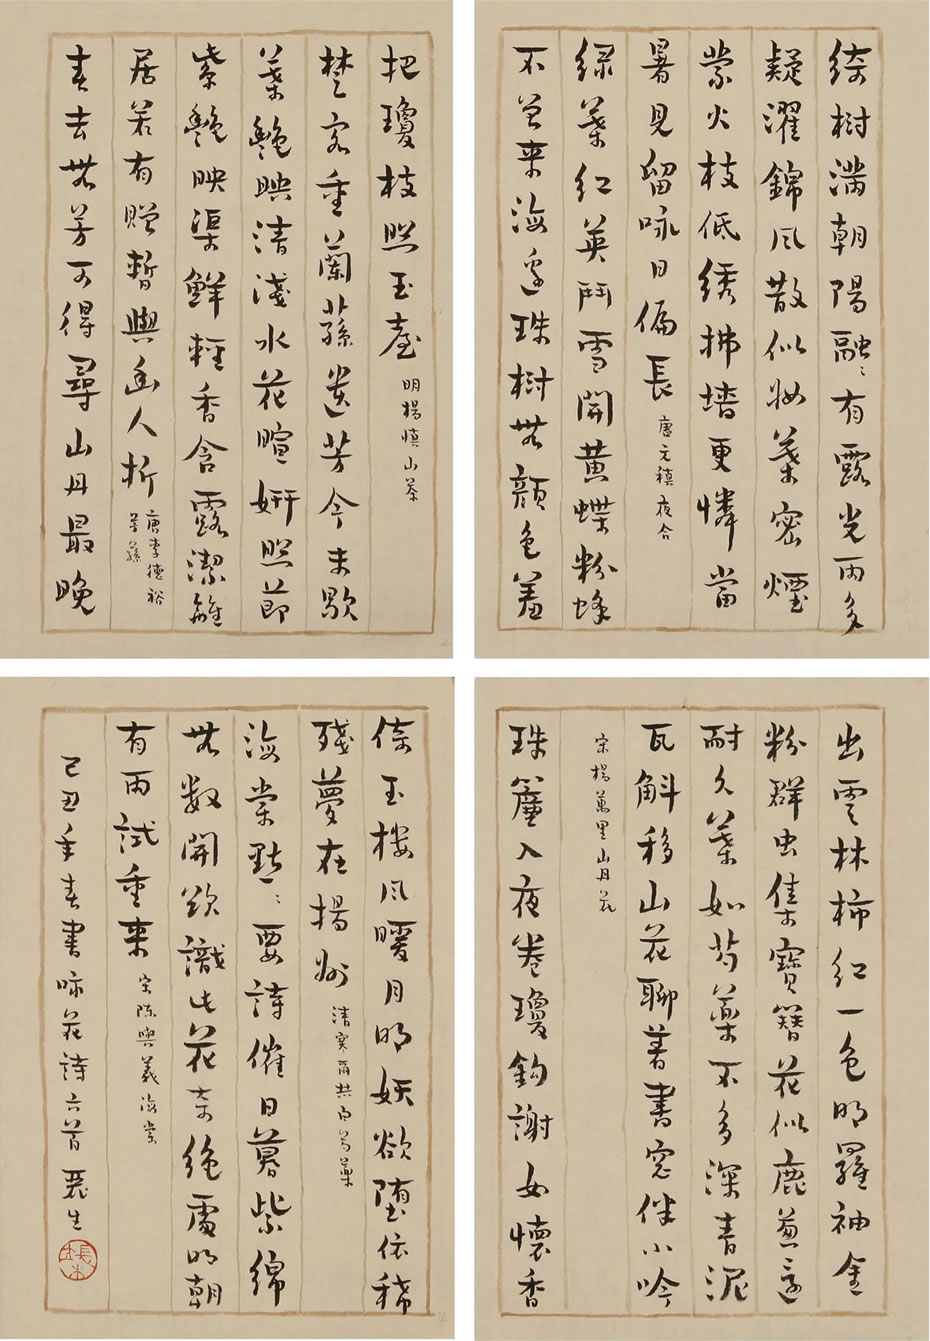 綺樹滿朝陽融〻有露光雨多
疑濯錦風散似妝葉密煙
蒙火枝低绣拂墻更憐當
暑見留咏日偏長 唐元稹夜合
绿葉红英鬥雪開黄蝶粉蜂
不曾来海邊珠樹無顏色羞
把瓊枝照玉臺 明楊慎山茶
楚客重蘭蓀遺芳今未歇
葉艷映清淺水花暄妍照節
紫艷映渠鮮輕香含露潔離
居若有贈暫與幽人折 唐李德裕
芳蓀
春去無芳可得尋山丹最晚
出雲林柿红一色明羅袖金
粉群虫集寶簪花似鹿葱還
耐久葉如芍藥不多深青泥
瓦斛移山花聊著書窓伴小吟
宋楊萬里山丹花
珠簾入夜卷瓊鈎謝女懷香
倚玉楼風暖月明妖欲堕依稀
殘夢在揚州 清塞爾赫白芍藥
海棠點〻要詩催日暮紫綿
無數開欲識此花奇絶處明朝
有雨試重來 宋陳與義海棠
己丑年春書咏花詩六首